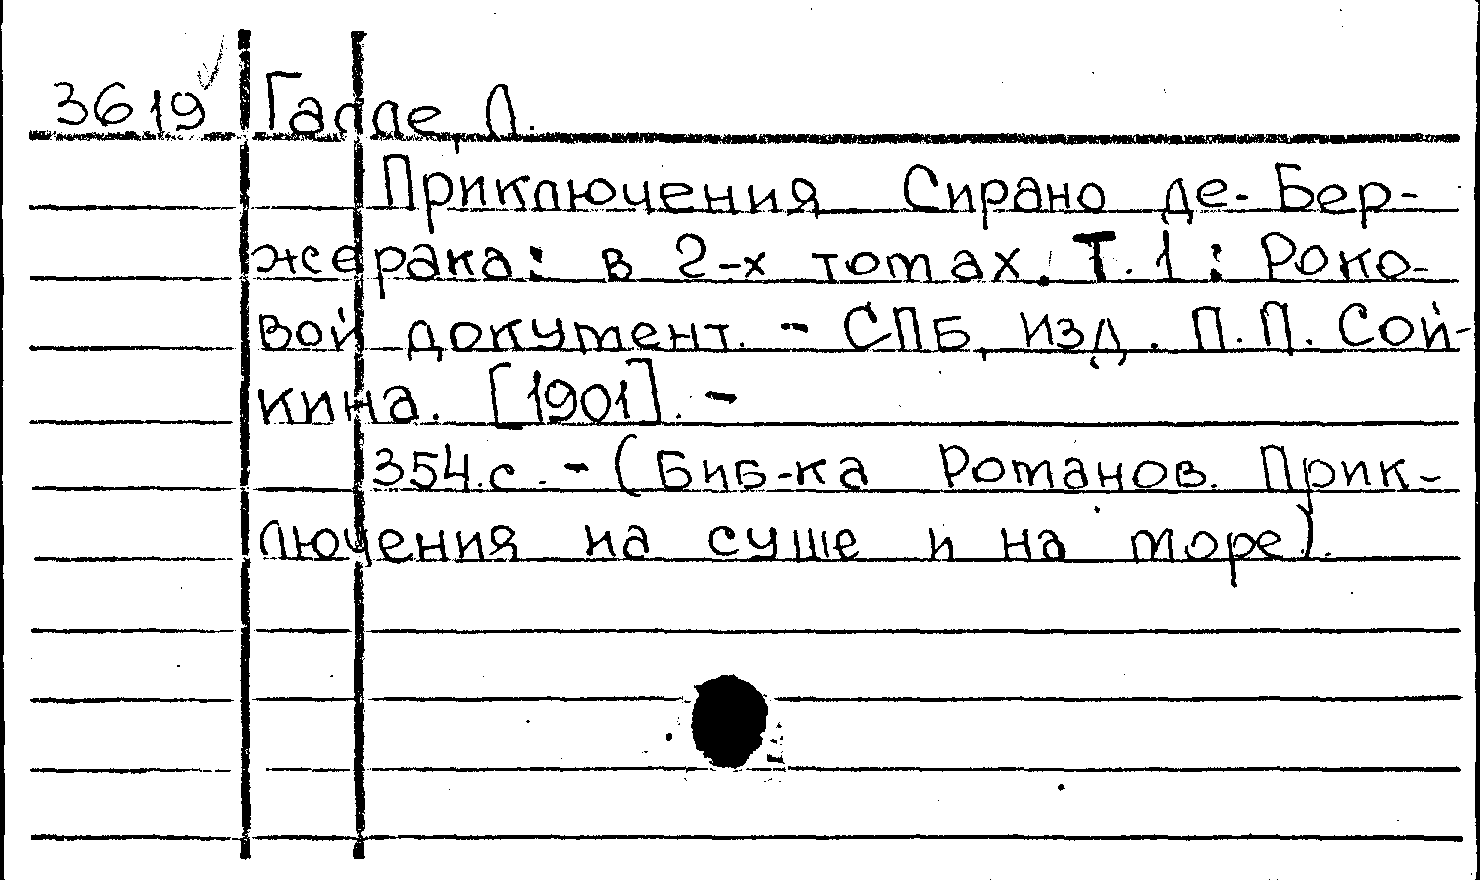 3619 Галле, Л.
Приключения Сирано де-Бер-
жерака: в 2-х томах. Т. 1: Роко-
вой документ. - СПБ, изд. П.П. Сой-
кина. [1901]. -
354.с. - (Биб-ка Романов. Прик-
лючения на суше и на море).